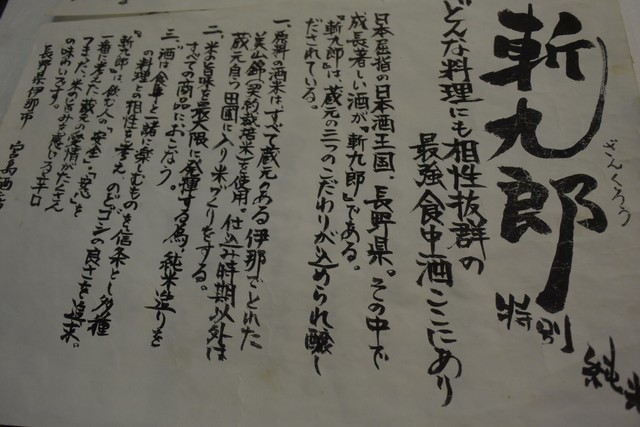 斬九郎
ざんくろう
特別
純米
どんな料理にも相性抜群の
最強食中酒ここにあり
日本屈指の日本酒王国、長野県。その中で
成長著しい酒が『斬九郎』である。
『斬九郎』は、蔵元の三つのこだわりが込められ醸し
だされている。
一、原料の酒米は、すべて蔵元のある伊那でとれた
美山錦(契約栽培米)を使用。仕込み時期以外は
蔵元自ら田圃に入り米づくりをする。
二、米の旨味を最大限に発揮する為、純米造りを
すべての商品におこなう。
三、酒は食事と一緒に楽しむものを信条とし、多種
の料理との相性を考え、のどゴシの良さを追求。
『斬九郎』は、飲む人の"安全"・"安心"を
一番に考えた蔵元の愛情がたくさん
つまった、米の旨みを感じる辛口
の味わいです。
長野県伊那市 宮島酒店